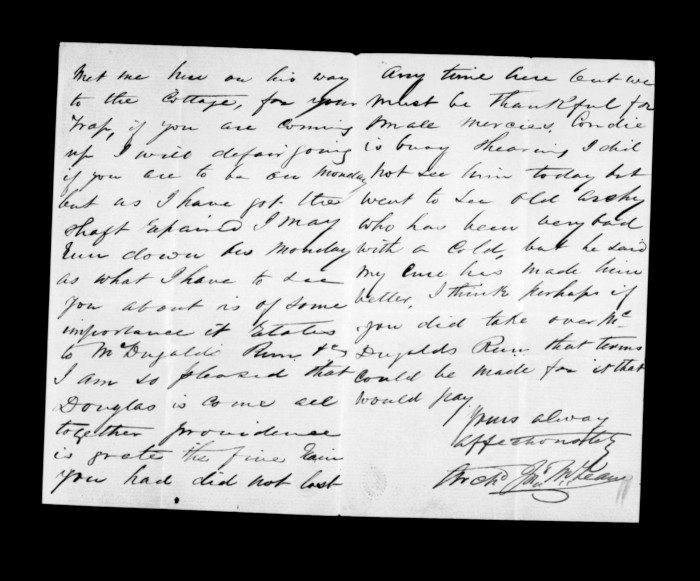 Met me here on his way
to the Cottage, for your
Trap, if you are coming
up I will defair going
if you are to be on Monday
but as I have got the
shaft Repaired I may
Run down on Monday
as what I have to see
you about is of some
importance it Estates
to McDugalds Run &c
I am so pleased that
Douglas is come all
together providence
is grate the fine Rain
you had did not last
any time here but we
must be thankful for
Smale mercies, Condie
is busy Shearing I did
not see him today but
went to see old Archy
who has been very bad
with a Cold, but he said
my cure has made him
better, I think perhaps if
you did take over Mc
Dugalds Run that terms
could be made for it that
would pay
Yours alway
affectionately
Archd Jno McLean